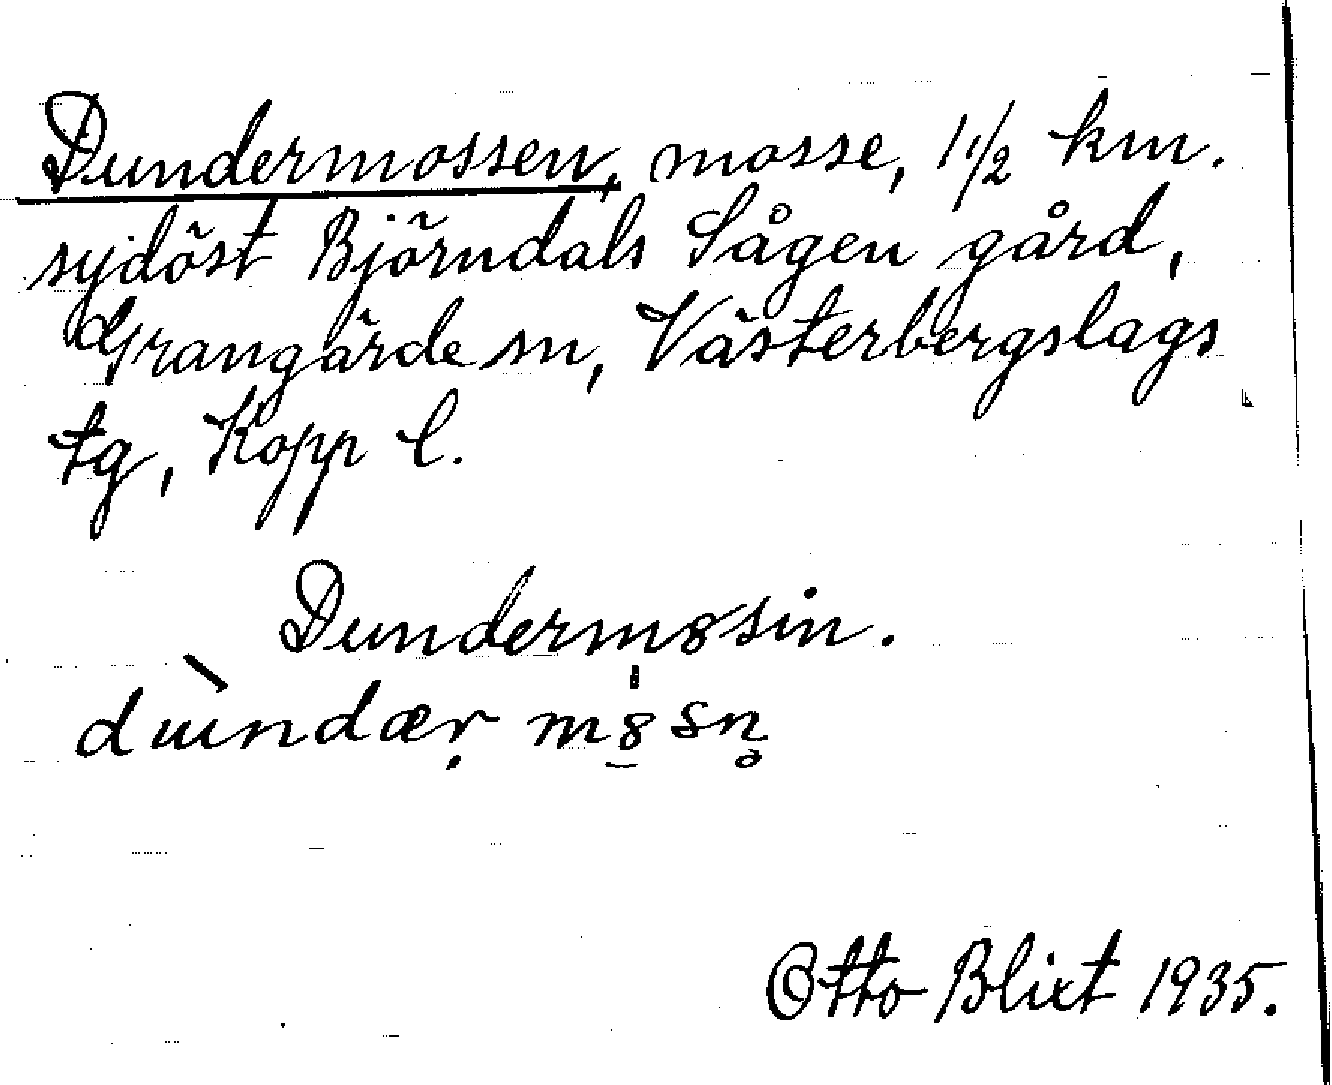 Dundermossen, mosse, 1 1/2 km.
sydöst Björndals Sågen gård,
Grangärde sn, Västerbergslags
tg, Kopp l.
Dundermȣsin.
dɯndær mȣsn̥
Otto Blixt 1935.